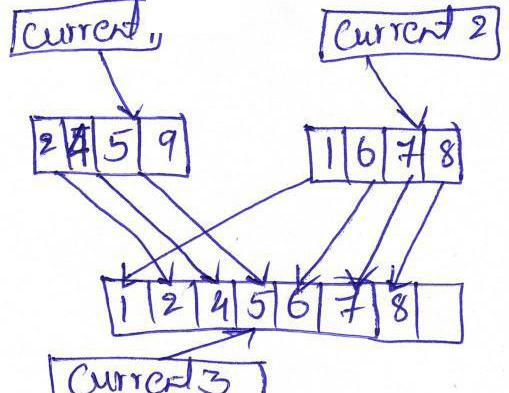 Current 1 Current 2
2 4 5 9 1 6 7 8
1 2 4 5 6 7 8
Current 3